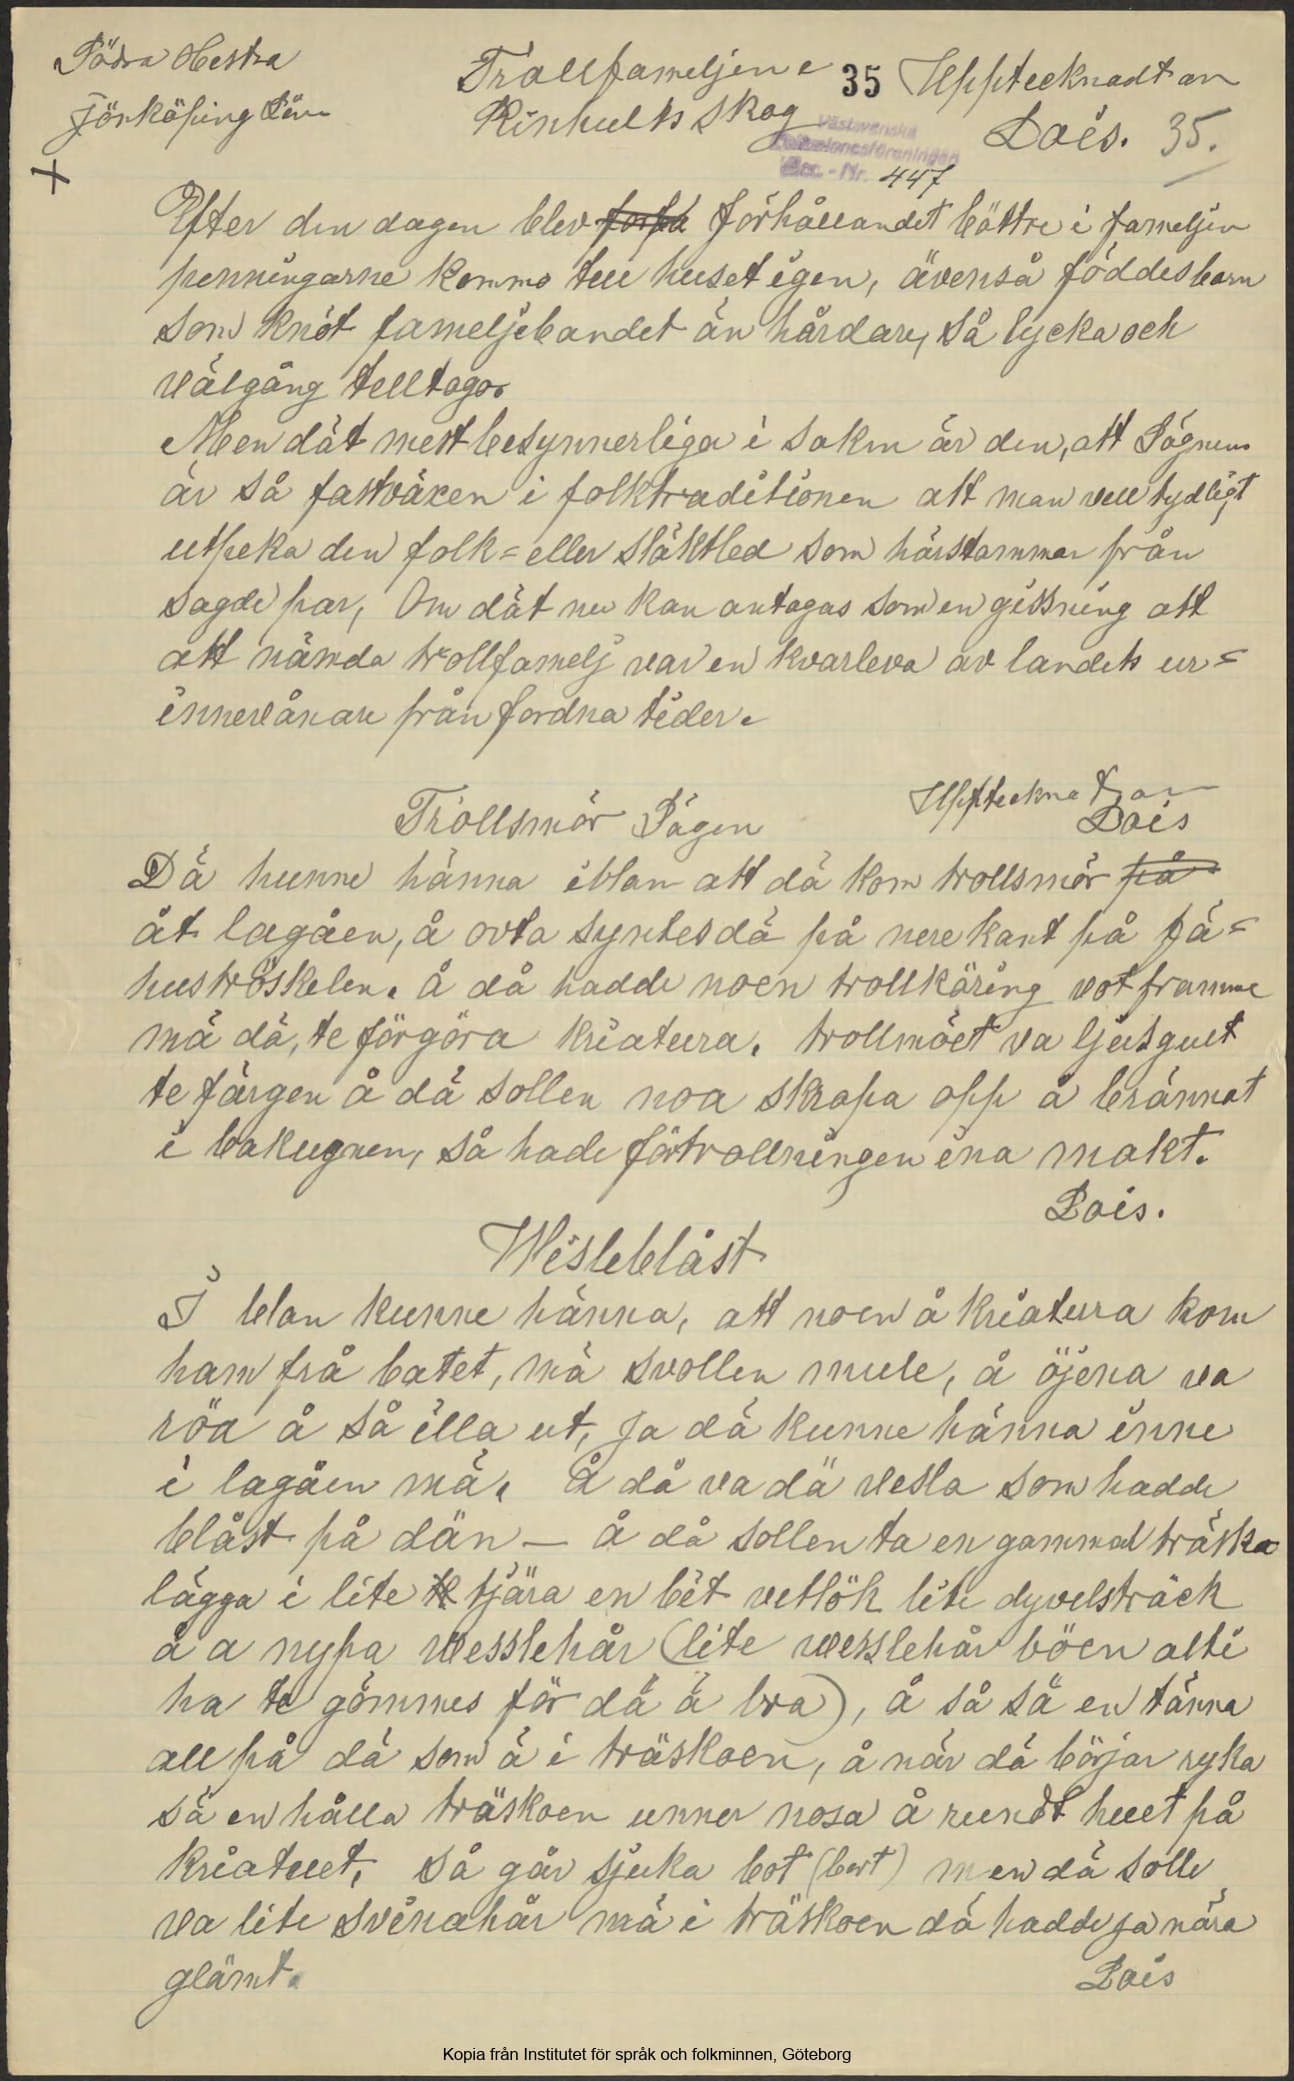 Södra Hestra
Jönköping Län
Trollfameljen i
Rinhults Skog
35
Upptecknadt av
Lois. 35.
Västsvenska
Folkminnesföreningen
Acc. - Nr. 447
Efter den dagen blev förhållandet bättre i fameljen
penningarne kommo till huset igen, ävenså föddes barn
som knöt fameljebandet än hårdare, så lycka och
välgång telltago.
Men dät mest besynnerliga i saken är den, att Sägnen
är så fastväxen i folktraditionen att man vill tydligt
utpeka den folk= eller släktled som härstammar från
sagde par, Om dät nu kan antagas som en gissning att
att nämda trollfamelj var en kvarleva av landets ur=
innevånare från fordna tider.
Trollsmör Sägen
Upptecknat av
Lois
Dä hunne hänna iblan att dä kom trollsmör på
åt lagåen, å ovta syntes dä på nere kant på fä=
huströskelen. å då hadde noen trollkäring vot framme
mä dä, te förgöra kriatura. trollmöet va ljusgult
te färgen å dä sollen noa skrapa opp å brännat
i bakugnen, så hade förtrollningen ina makt.
Lois.
Wisleblåst
I blan kunne hänna, att noen å kriatura kom
ham frå betet, mä svollen mule, å öjena va
röa å så illa ut, ja dä kunne hänna inne
i lagåen mä. å då va dä vesla som hadde
blåst på dän — å då sollen ta en gammal träska
lägga i lite tjära en bit vetlök lite dyvelsträck
å a nypa wesslehår (lite wesslehår böen alti
ha te gömmes för dä ä bra), å så sä en tänna
all på dä som ä i träskoen, å när dä börjar ryka
sä en hålla träskoen unner nosa å rundt huet på
kriatuet, så går sjuka bot (bort) men dä solle
va lite svinahår mä i träskoen dä hadde ja nära
glämt.
Lois
Kopia från Institutet för språk och folkminnen, Göteborg